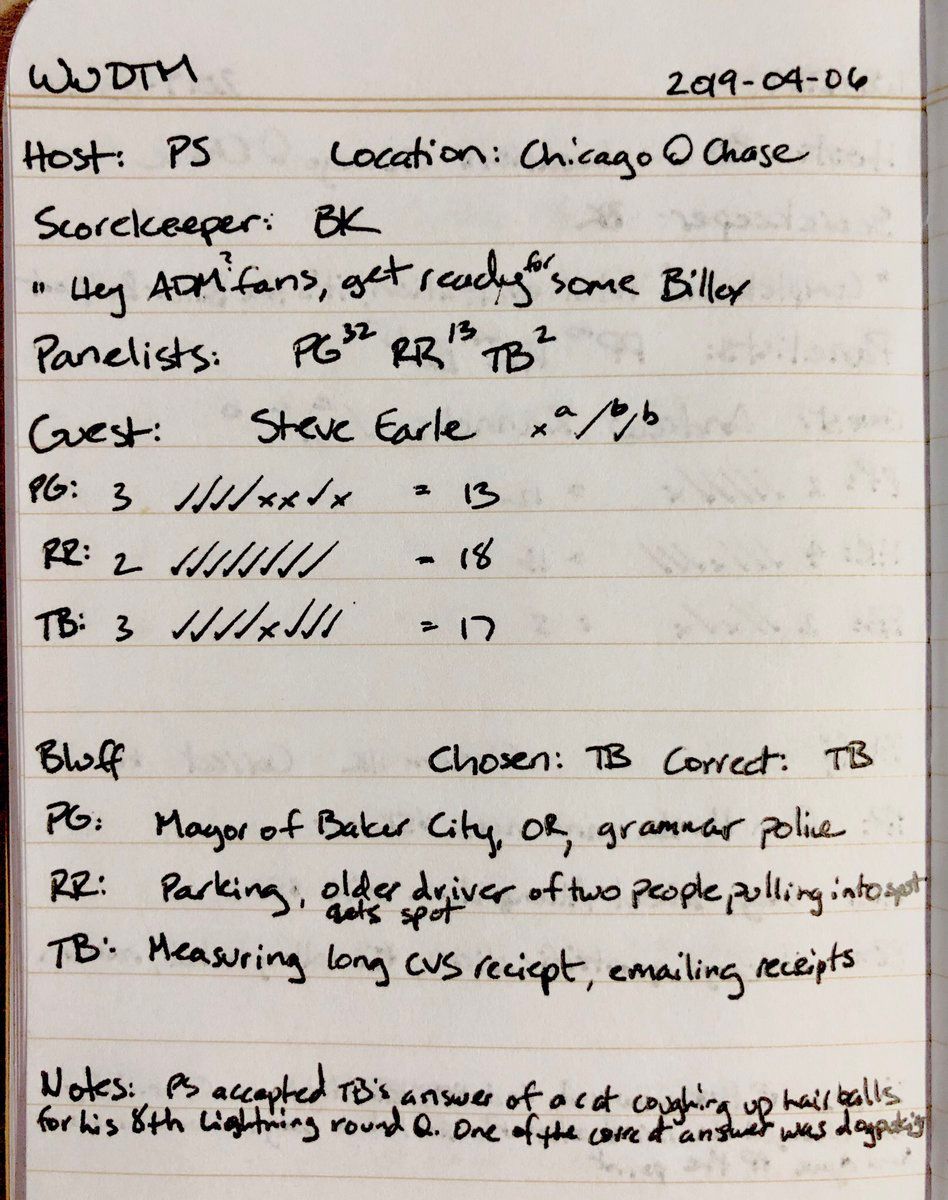 WWDTM 2019-04-06
Host: PS Location: Chicago @ Chase
Scorekeeper: BK
" Hey ADM? fans, get ready for some Biller
Panelists: PG32 RR13 TB2
Guest: Steve Earle xa /b/b
PG: 3 ✓✓✓✓xx✓x = 13
RR: 2 ✓✓✓✓✓✓✓✓ = 18
TB: 3 ✓✓✓✓x✓✓✓ = 17
Bluff Chosen: TB Correct: TB
PG: Mayor of Baker City, OR, grammar police
RR: Parking, older driver of two people, pulling into spot
gets spot
TB: Measuring long CVS reciept, emailing receipts
Notes: PS accepted TB's answer of a cat coughing up hairballs
for his 8th Lightning round Q. One of the correct answer was dog